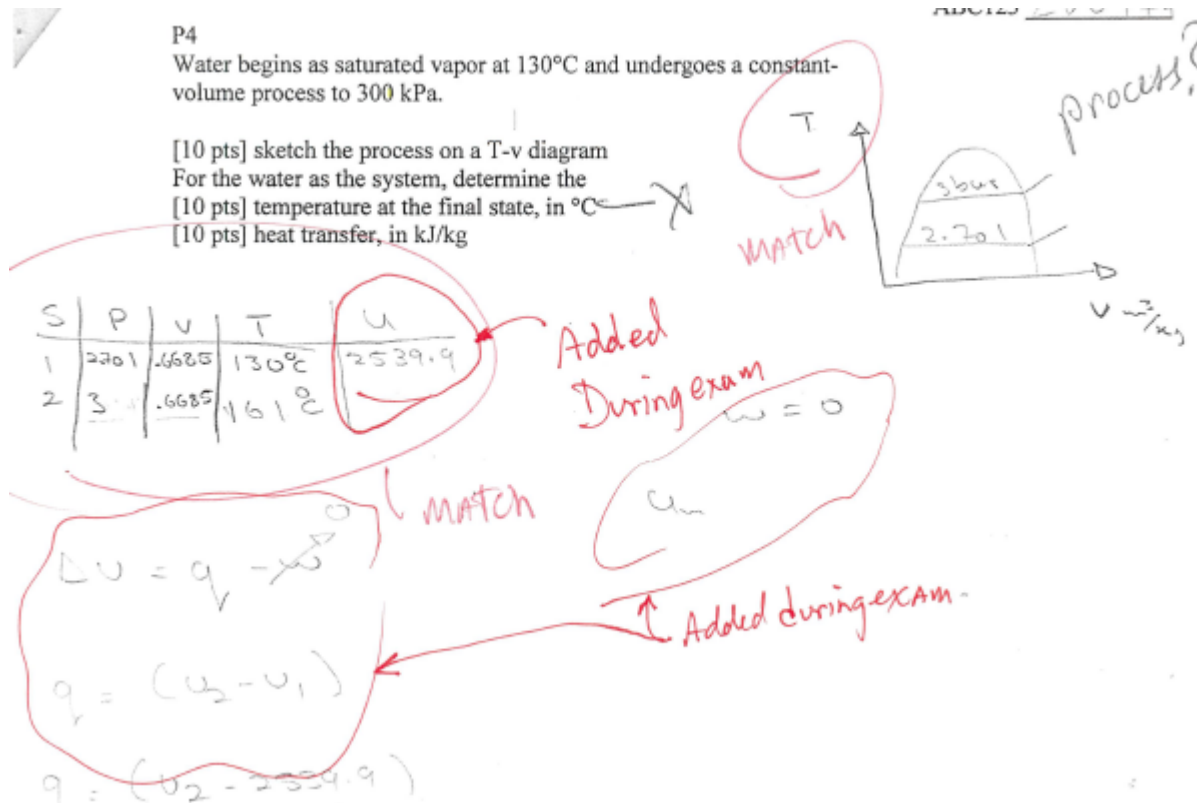 P4
Water begins as saturated vapor at 130°C and undergoes a constant-
volume process to 300 kPa.
process?
[10 pts] sketch the process on a T-v diagram
For the water as the system, determine the
[10 pts] temperature at the final state, in °C
[10 pts] heat transfer, in kJ/kg
T
3bar
2.701
V m³/kg
MATCH
S P V T U
1 2701 .6685 130°C 2539.9
2 3 .6685 161°C
Added
During exam
w = 0
Um
MATCH
Added during exam.
ΔU = q - w 0
q = (u2 - u1)
q = (u2 - 2539.9)